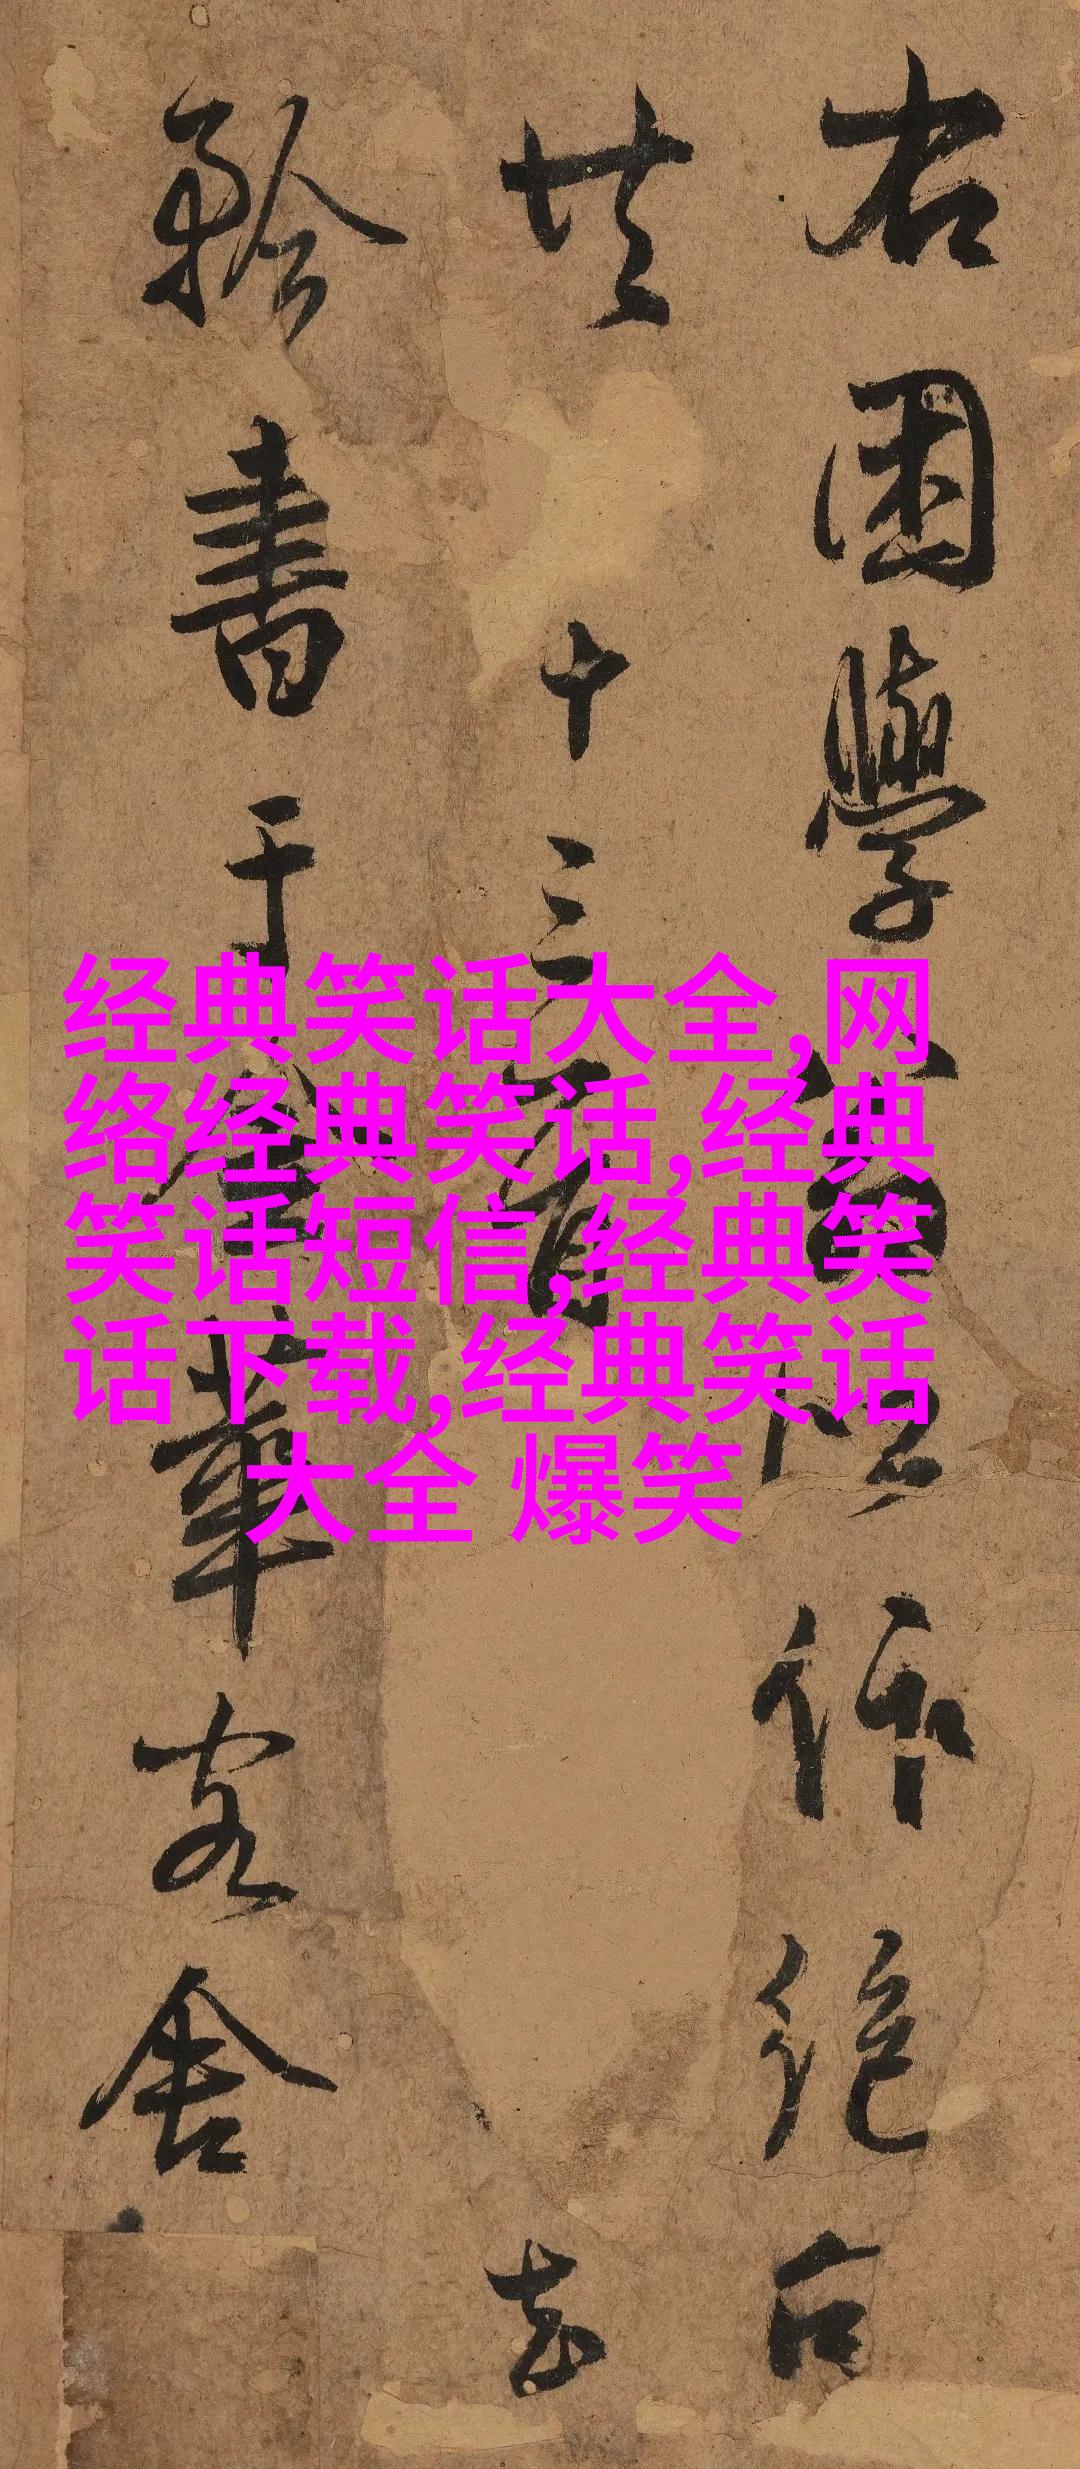 经典笑话大全,网
络经典笑话,经典
笑话短信,经典笑
话下载,经典笑话
大全 爆笑
右困學
作絶句
共
十三
書于
華客舍